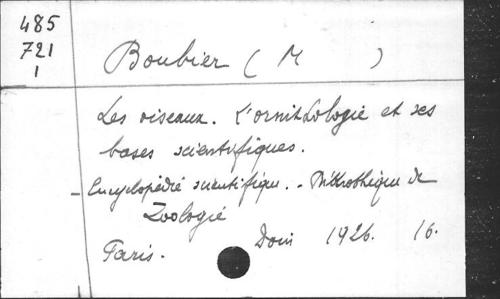 485
721
1
Boubier ( M )
Les oiseaux. L'ornithologie et ses
bases scientifiques.
- Encyclopédie scientifique. - Bibliothèque de
Zoologie
Paris. Doin 1926. 16.